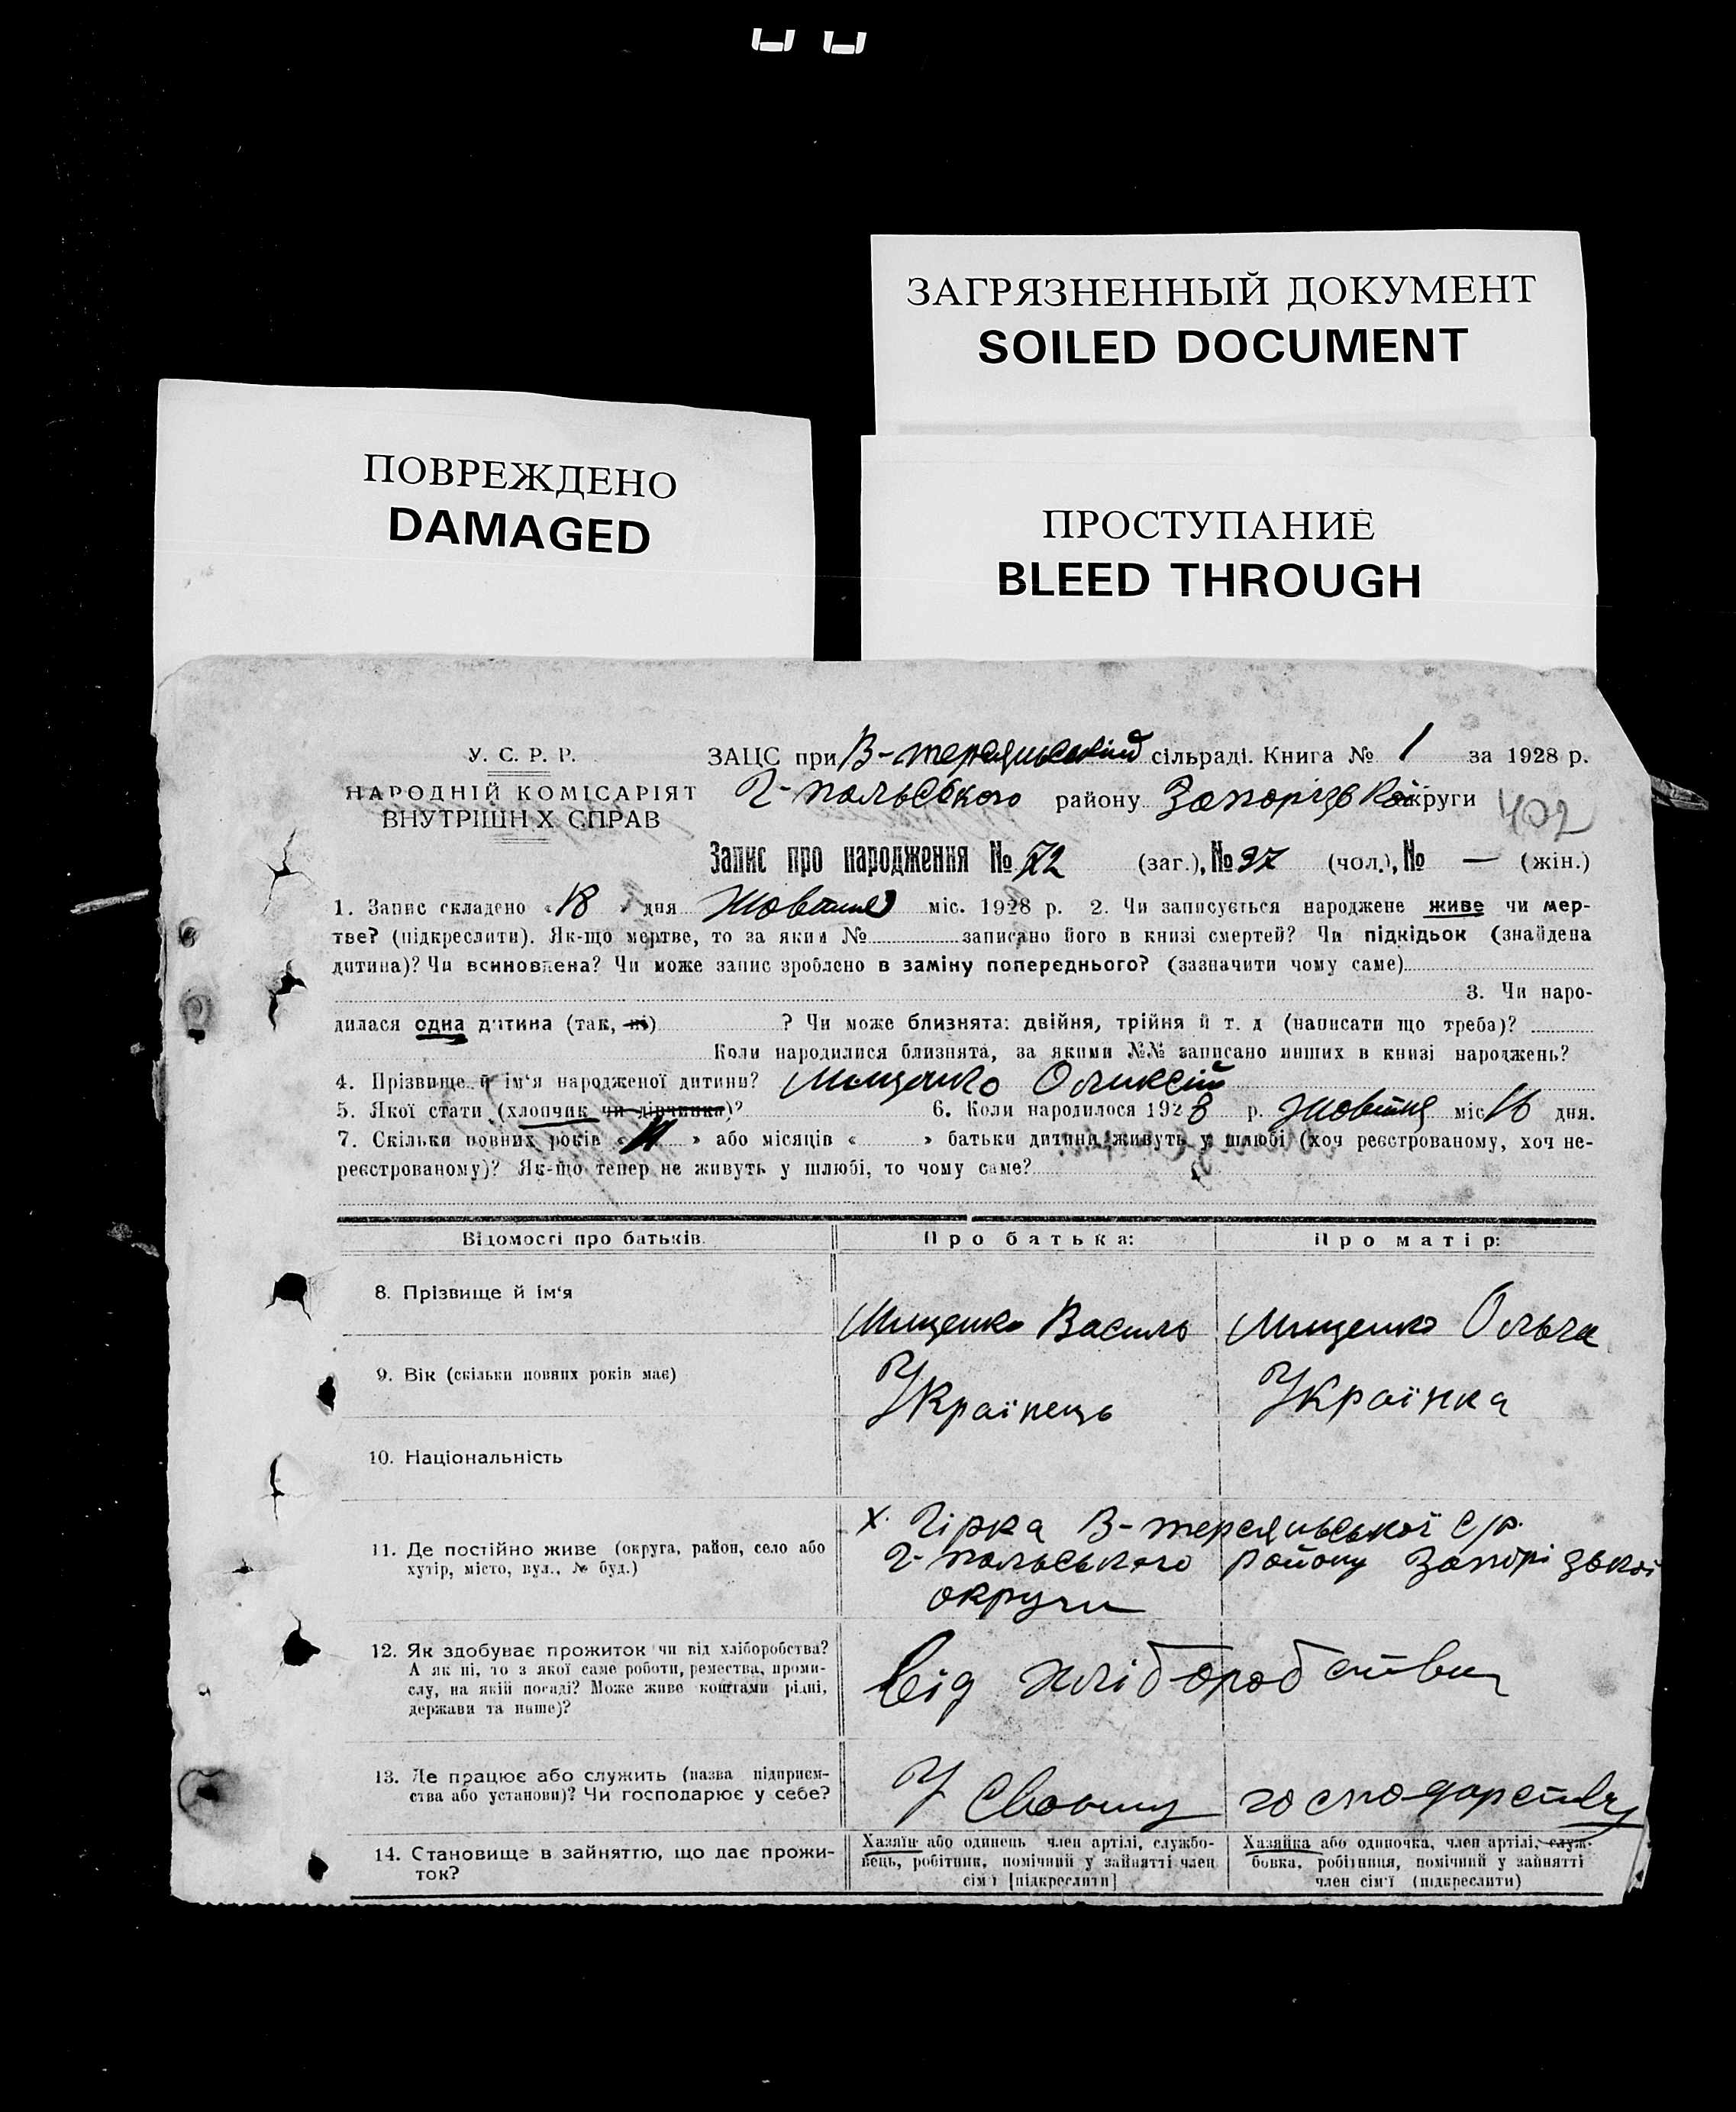 ЗАГРЯЗНЕННЫЙ ДОКУМЕНТ
SOILED DOCUMENT
ПОВРЕЖДЕНО
DAMAGED
ПРОСТУПАНИЕ
BLEED THROUGH
У. С. Р. Р.
НАРОДНІЙ КОМІСАРІЯТ
ВНУТРІШНІХ СПРАВ
ЗАЦС при В-терсянській сільраді. Книга № 1 за 1928 р.
Г-польського району Запорізької округи
402
Запис про народження № 72 (заг.), № 37 (чол.), № — (жін.)
1. Запис складено «18» дня Жовтня міс. 1928 р. 2. Чи записується народжене живе чи мер-
тве? (підкреслити). Як-що мертве, то за яким № записано його в книзі смертей? Чи підкідьок (знайдена
дитина)? Чи всиновлена? Чи може запис зроблено в заміну попереднього? (зазначити чому саме)
3. Чи наро-
дилася одна дитина (так, ні) ? Чи може близнята: двійня, трійня й т. д (написати що треба)?
Коли народилися близнята, за якими №№ записано инших в книзі народжень?
4. Прізвище й ім'я народженої дитини? Мищенко Оликсій
5. Якої стати (хлопчик чи дівчинка)? 6. Коли народилося 1928 р. Жовтня міс 16 дня.
7. Скільки повних років « » або місяців « » батьки дитини живуть у шлюбі (хоч реєстрованому, хоч не-
реєстрованому)? Як-що тепер не живуть у шлюбі, то чому саме?
Відомості про батьків. Про батька: Про матір:
8. Прізвище й ім'я Мищенко Василь Мищенко Ольга
9. Вік (скільки повних років має) Українець Українка
10. Національність
11. Де постійно живе (округа, район, село або
хутір, місто, вул., № буд.)
х. Гірка В-терсянської с/р.
Г-польського району Запорізької
округи
12. Як здобуває прожиток чи від хліборобства?
А як ні, то з якої саме роботи, ремества, проми-
слу, на якій посаді? Може живе коштами рідні,
держави та инше)?
від хліборобства
13. Де працює або служить (назва підприєм-
ства або установи)? Чи господарює у себе?
У своєму господарстві
14. Становище в зайняттю, що дає прожи-
ток?
Хазяїн або одинець член артілі, службо-
вець, робітник, помічний у зайнятті член
сім'ї [підкреслити]
Хазяйка або одиночка, член артілі, служ-
бовка, робітниця, помічний у зайнятті
член сім'ї (підкреслити)